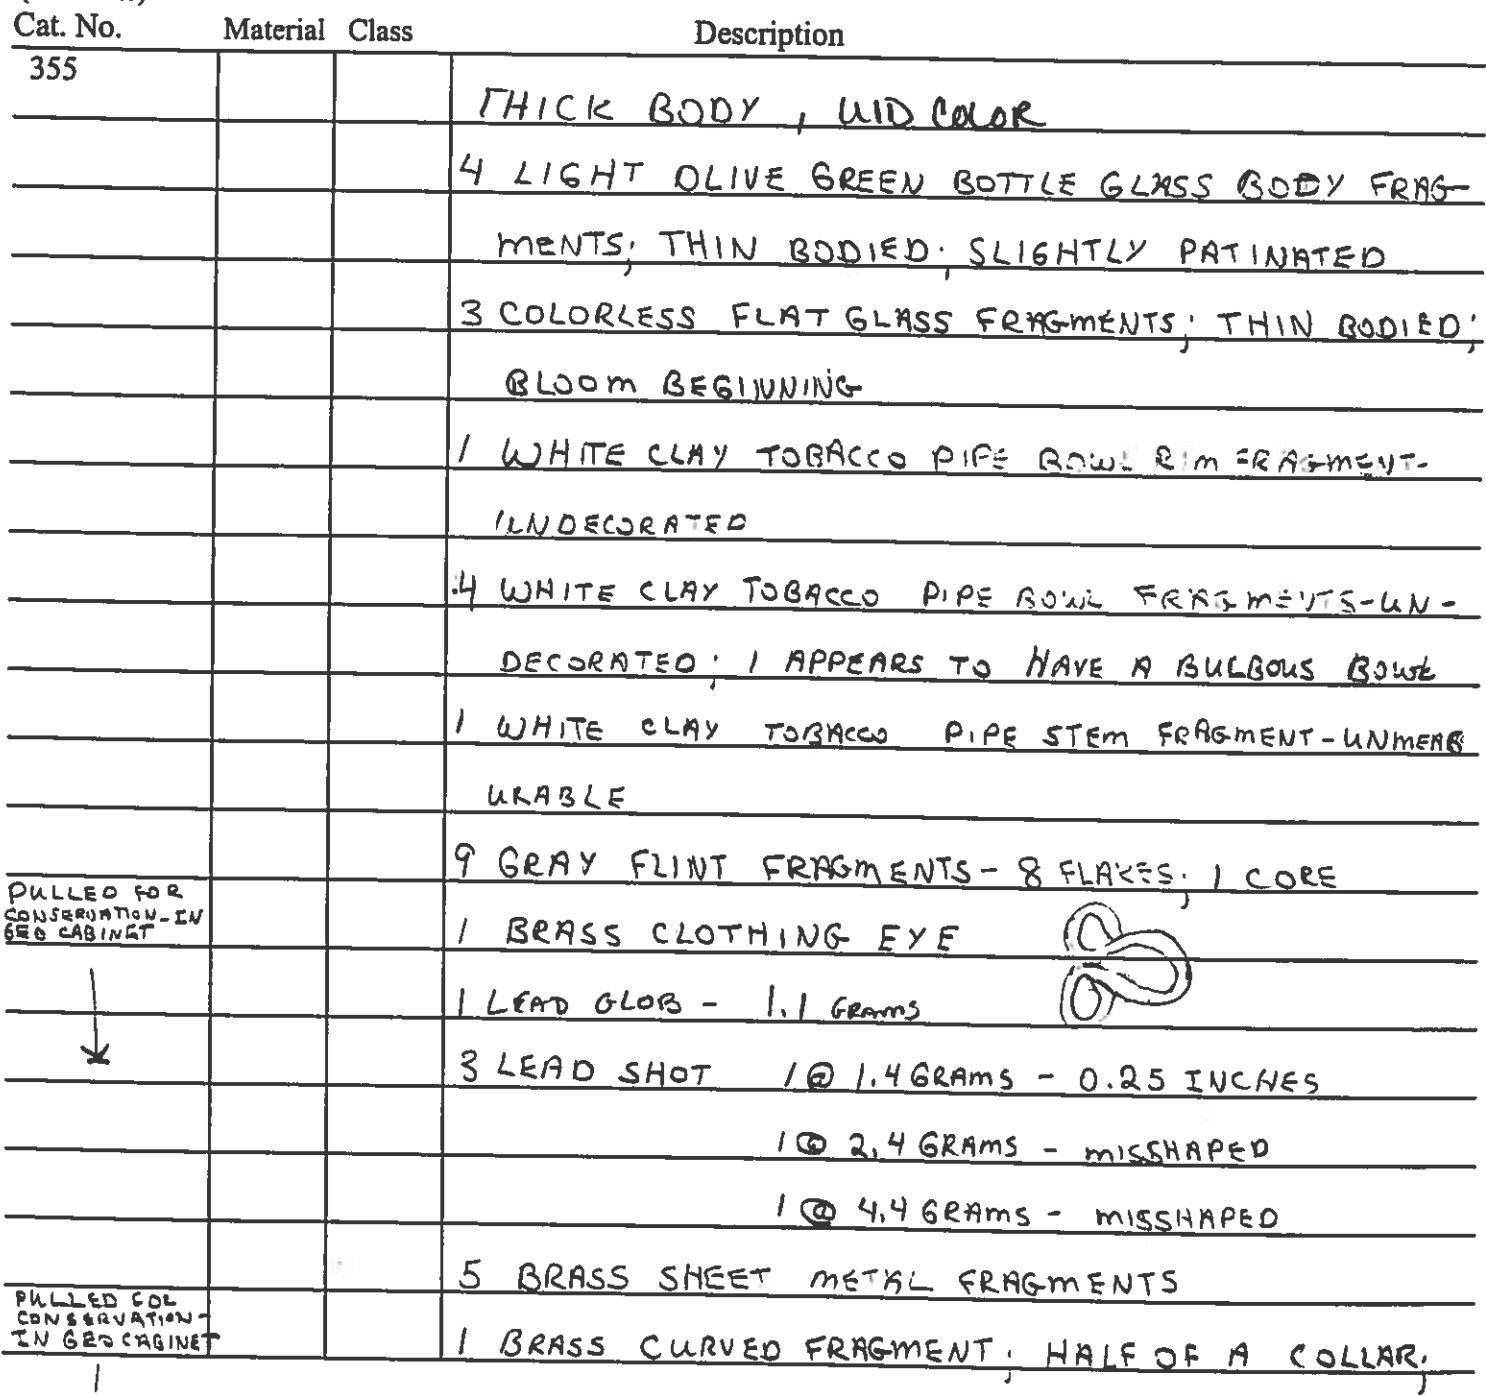 Cat. No. Material Class Description
355
THICK BODY, UID COLOR
4 LIGHT OLIVE GREEN BOTTLE GLASS BODY FRAG-
MENTS; THIN BODIED; SLIGHTLY PATINATED
3 COLORLESS FLAT GLASS FRAGMENTS; THIN BODIED;
BLOOM BEGINNING
1 WHITE CLAY TOBACCO PIPE BOWL RIM FRAGMENT-
UNDECORATED
4 WHITE CLAY TOBACCO PIPE BOWL FRAGMENTS-UN-
DECORATED; 1 APPEARS TO HAVE A BULBOUS BOWL
1 WHITE CLAY TOBACCO PIPE STEM FRAGMENT-UNMEAS
URABLE
9 GRAY FLINT FRAGMENTS- 8 FLAKES; 1 CORE
PULLED FOR
CONSERVATION-IN
GEO CABINET
1 BRASS CLOTHING EYE
1 LEAD GLOB - 1.1 GRAMS
3 LEAD SHOT 1@ 1.4 GRAMS - 0.25 INCHES
1@ 2.4 GRAMS - MISSHAPED
1@ 4.4 GRAMS - MISSHAPED
5 BRASS SHEET METAL FRAGMENTS
PULLED FOR
CONSERVATION-
IN GEO CABINET
1 BRASS CURVED FRAGMENT; HALF OF A COLLAR;